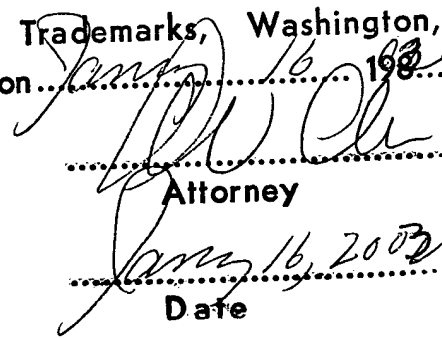 Trademarks, Washington,
on January 16 198
Attorney
January 16, 2003
Date